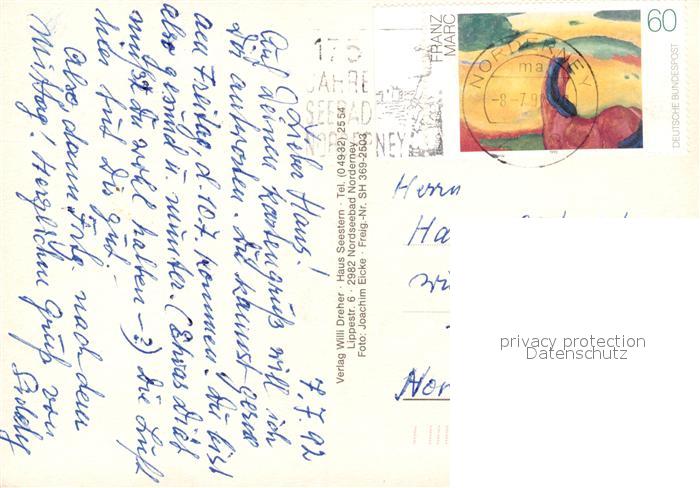 7.7.92
Lieber Hans!
Auf Deinen Kartengruß will ich
Dir antworten. Du kannst gerne
am Freitag, d. 10.7. kommen. Du bist
also gesund u. munter. (Etwas Diät
mußt Du wohl halten -?) Die Luft
hier tut Dir gut.
Also, dann Frtg. nach dem
Mittag! Herzlichen Gruß von
Verlag Willi Dreher · Haus Seestern · Tel. (04932) 2554
Lippestr. 6 · 2982 Nordseebad Norderney
Foto: Joachim Eicke · Freig.-Nr. SH 369-2503
175
JAHRE
SEEBAD
NORDERNEY
FRANZ
MARC
60
DEUTSCHE BUNDESPOST
NORDERNEY
ma
-8-7.9
Herrn
Ha
Nor
privacy protection
Datenschutz